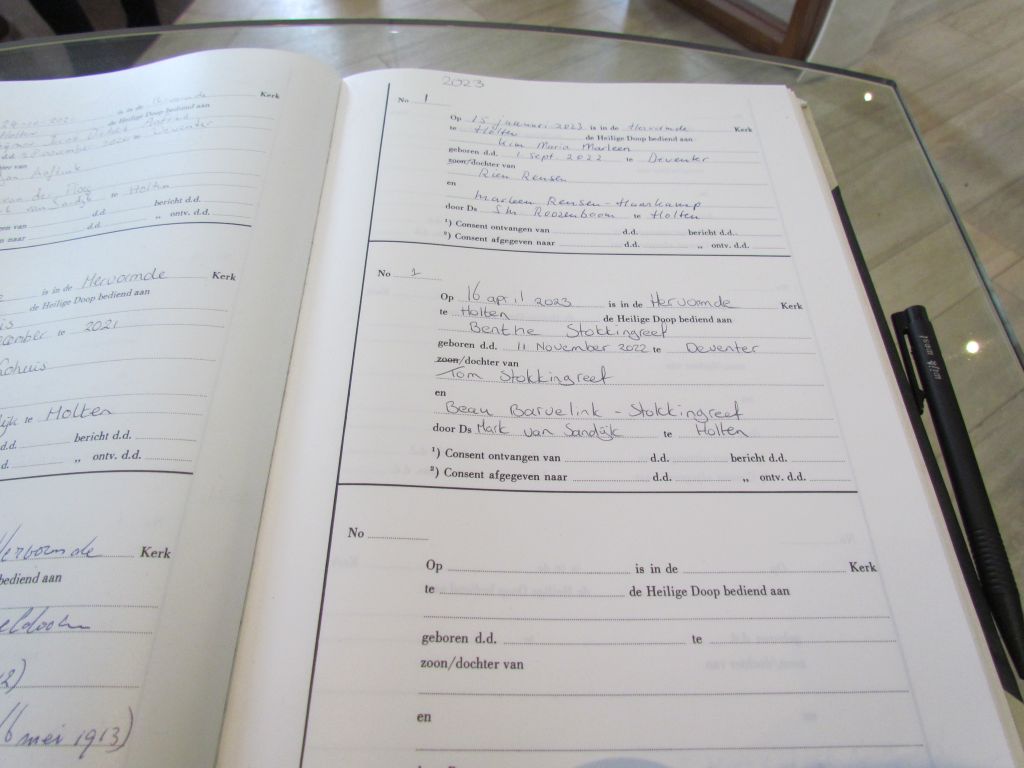 is in de Hervormde Kerk
Holten de Heilige Doop bediend aan
Deventer
van der Ploeg te Holten
van Sandijk bericht d.d.
ngen van d.d. „ ontv. d.d.
en naar d.d.
is in de Hervormde Kerk
de Heilige Doop bediend aan
cember te 2021
ohuis
ijk te Holten
d.d. bericht d.d.
d.d. „ ontv. d.d.
Hervormde Kerk
bediend aan
eldoorn
2)
(6 mei 1913)
2023
No 1
Op 15 januari 2023 is in de Hervormde Kerk
te Holten de Heilige Doop bediend aan
Kim Maria Marleen
geboren d.d. 1 sept 2022 te Deventer
zoon/dochter van
Rien Rensen
en
Marleen Rensen-Haarkamp
door Ds Roozenboom te Holten
¹) Consent ontvangen van d.d. bericht d.d.
²) Consent afgegeven naar d.d. „ ontv. d.d.
No 1
Op 16 april 2023 is in de Hervormde Kerk
te Holten de Heilige Doop bediend aan
Benthe Stokkingreef
geboren d.d. 11 November 2022 te Deventer
zoon/dochter van
Tom Stokkingreef
en
Beau Barvelink - Stokkingreef
door Ds Mark van Sandijk te Holten
¹) Consent ontvangen van d.d. bericht d.d.
²) Consent afgegeven naar d.d. „ ontv. d.d.
No
Op is in de Kerk
te de Heilige Doop bediend aan
geboren d.d. te
zoon/dochter van
en